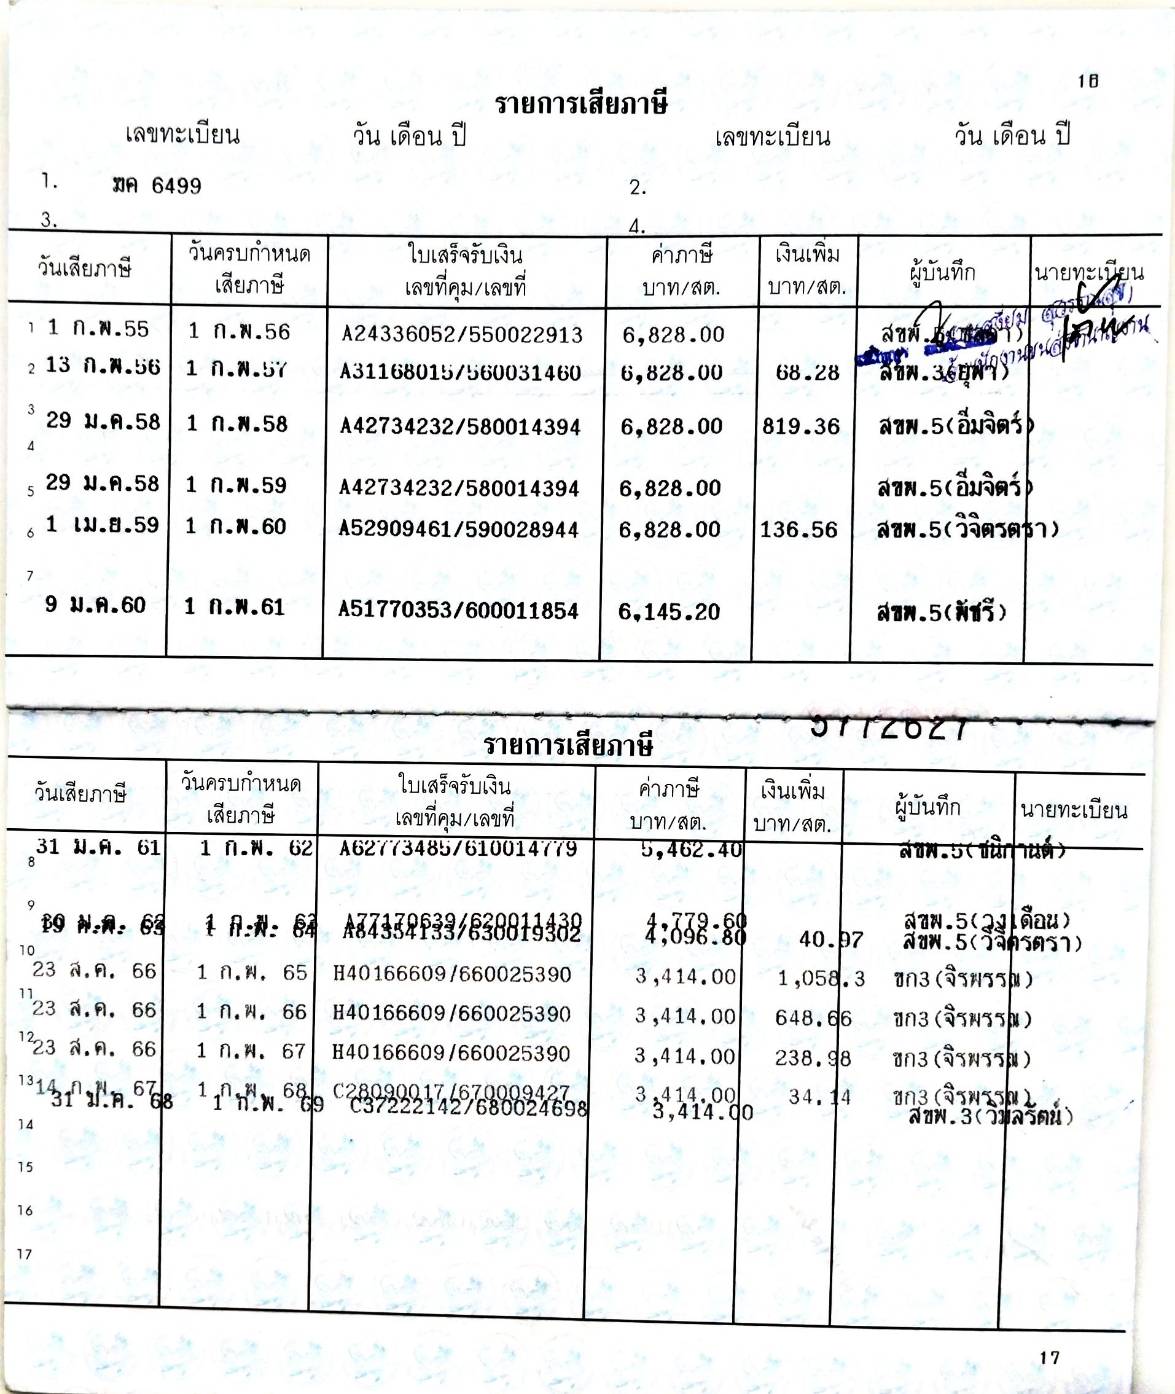 16
รายการเสียภาษี
เลขทะเบียน วัน เดือน ปี เลขทะเบียน วัน เดือน ปี
1. ฆค 6499 2.
3. 4.
วันเสียภาษี วันครบกำหนดเสียภาษี ใบเสร็จรับเงิน เลขที่คุม/เลขที่ ค่าภาษี บาท/สต. เงินเพิ่ม บาท/สต. ผู้บันทึก นายทะเบียน
1 1 ก.พ.55 1 ก.พ.56 A24336052/550022913 6,828.00 สขพ.
2 13 ก.พ.56 1 ก.พ.57 A31168015/560031460 6,828.00 68.28 สขพ.3(ยุพา)
3 29 ม.ค.58 1 ก.พ.58 A42734232/580014394 6,828.00 819.36 สขพ.5(อิ่มจิตร์)
4
5 29 ม.ค.58 1 ก.พ.59 A42734232/580014394 6,828.00 สขพ.5(อิ่มจิตร์)
6 1 เม.ย.59 1 ก.พ.60 A52909461/590028944 6,828.00 136.56 สขพ.5(วิจิตรตรา)
7
9 ม.ค.60 1 ก.พ.61 A51770353/600011854 6,145.20 สขพ.5(พัชรี)
5772627
รายการเสียภาษี
วันเสียภาษี วันครบกำหนดเสียภาษี ใบเสร็จรับเงิน เลขที่คุม/เลขที่ ค่าภาษี บาท/สต. เงินเพิ่ม บาท/สต. ผู้บันทึก นายทะเบียน
8 31 ม.ค. 61 1 ก.พ. 62 A62773485/610014779 5,462.40 สขพ.5(ชนิกานต์)
9 30 ม.ค. 62 1 ก.พ. 63 A77170639/620011430 4,779.60 สขพ.5(วงเดือน)
19 ก.พ. 63 1 ก.พ. 64 A84354133/630019302 4,096.80 40.97 สขพ.5(วิจิตรตรา)
10 23 ส.ค. 66 1 ก.พ. 65 H40166609/660025390 3,414.00 1,058.3 ขก3(จิรพรรณ)
11 23 ส.ค. 66 1 ก.พ. 66 H40166609/660025390 3,414.00 648.66 ขก3(จิรพรรณ)
12 23 ส.ค. 66 1 ก.พ. 67 H40166609/660025390 3,414.00 238.98 ขก3(จิรพรรณ)
13 14 ก.พ. 67 1 ก.พ. 68 C28090017/670009427 3,414.00 34.14 ขก3(จิรพรรณ)
31 ม.ค. 68 1 ก.พ. 69 C37222142/680024698 3,414.00 สขพ.3(วิมลรัตน์)
14
15
16
17
17